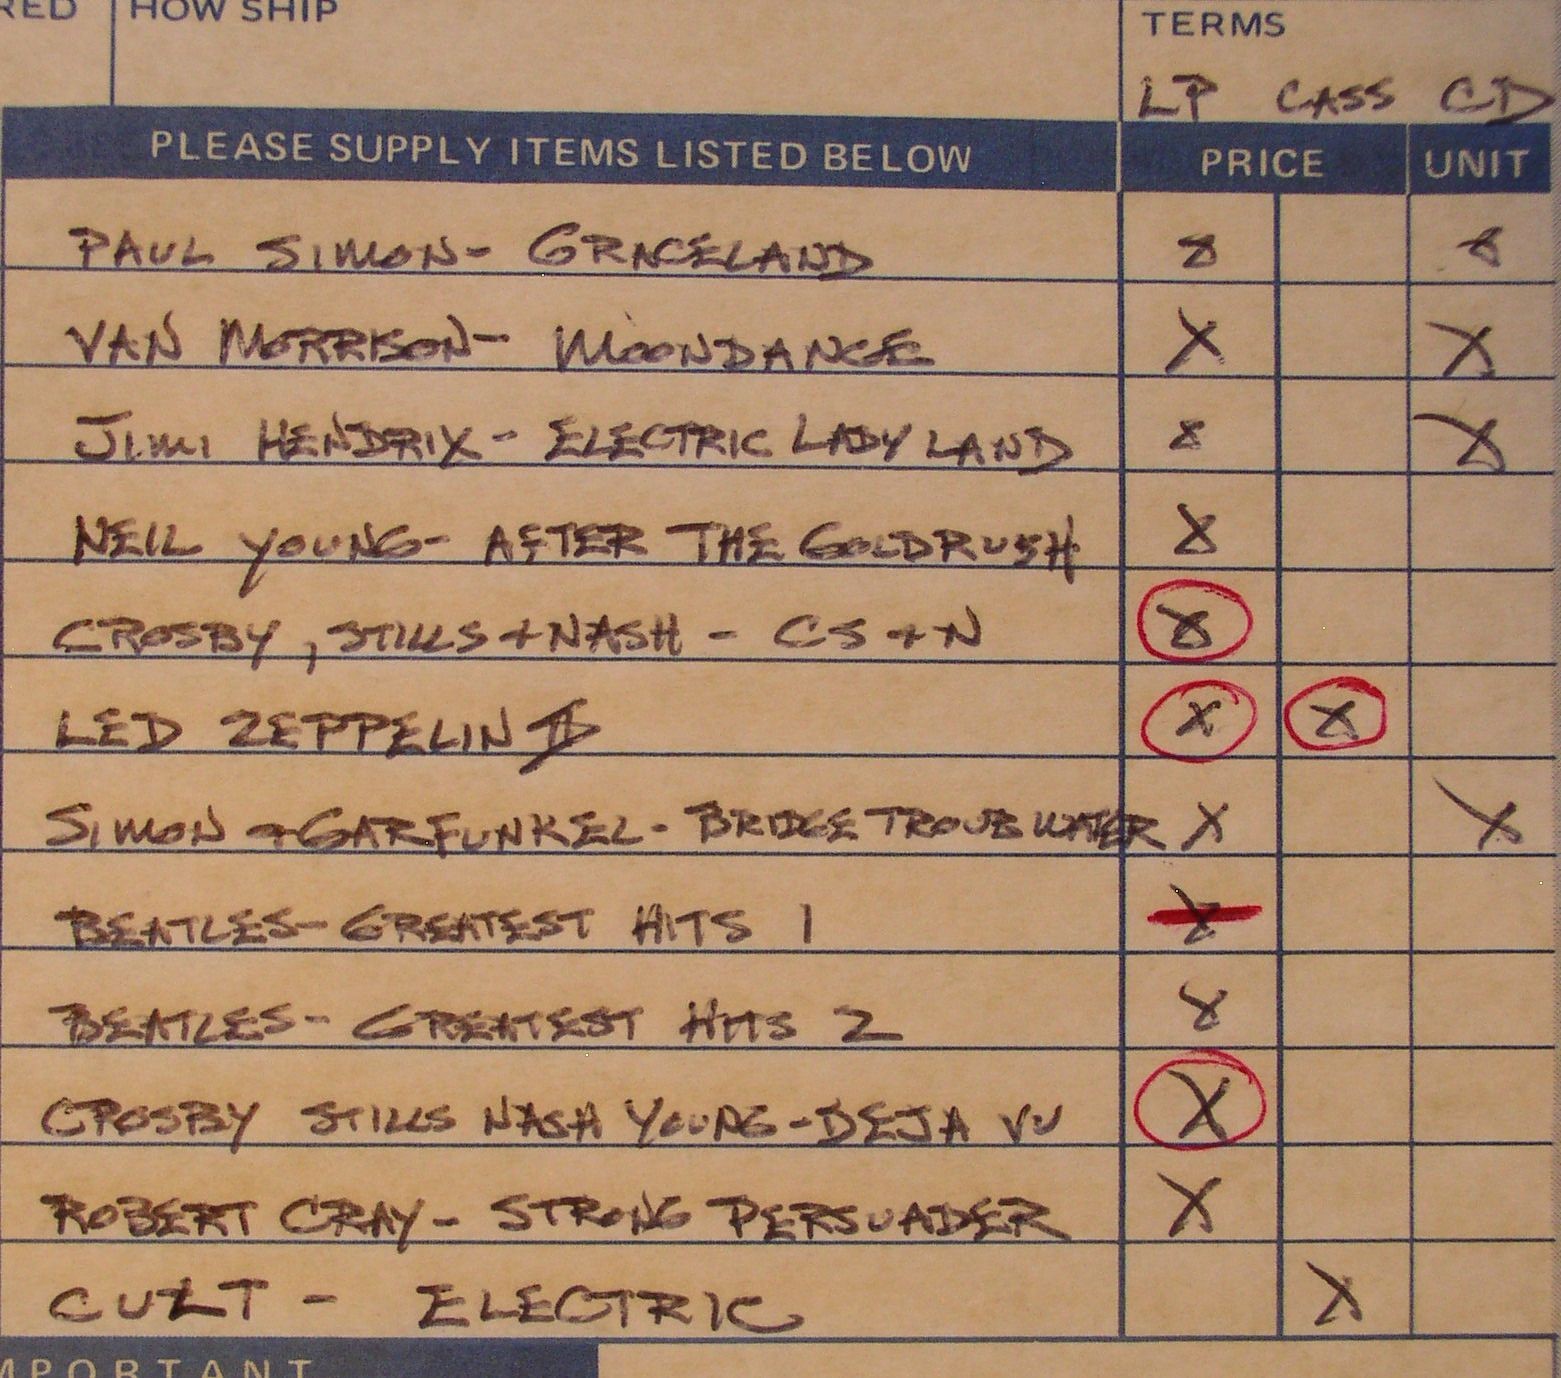 RED HOW SHIP TERMS
LP CASS CD
PLEASE SUPPLY ITEMS LISTED BELOW PRICE UNIT
PAUL SIMON- GRACELAND X X
VAN MORRISON- MOONDANCE X X
JIMI HENDRIX - ELECTRIC LADY LAND X X
NEIL YOUNG- AFTER THE GOLDRUSH X
CROSBY, STILLS + NASH - CS + N X
LED ZEPPELIN II X X
SIMON + GARFUNKEL - BRIDGE TROUB WATER X X
BEATLES- GREATEST HITS 1 X
BEATLES- GREATEST HITS 2 X
CROSBY STILLS NASH YOUNG - DEJA VU X
ROBERT CRAY - STRONG PERSUADER X
CULT - ELECTRIC X
MPORTANT